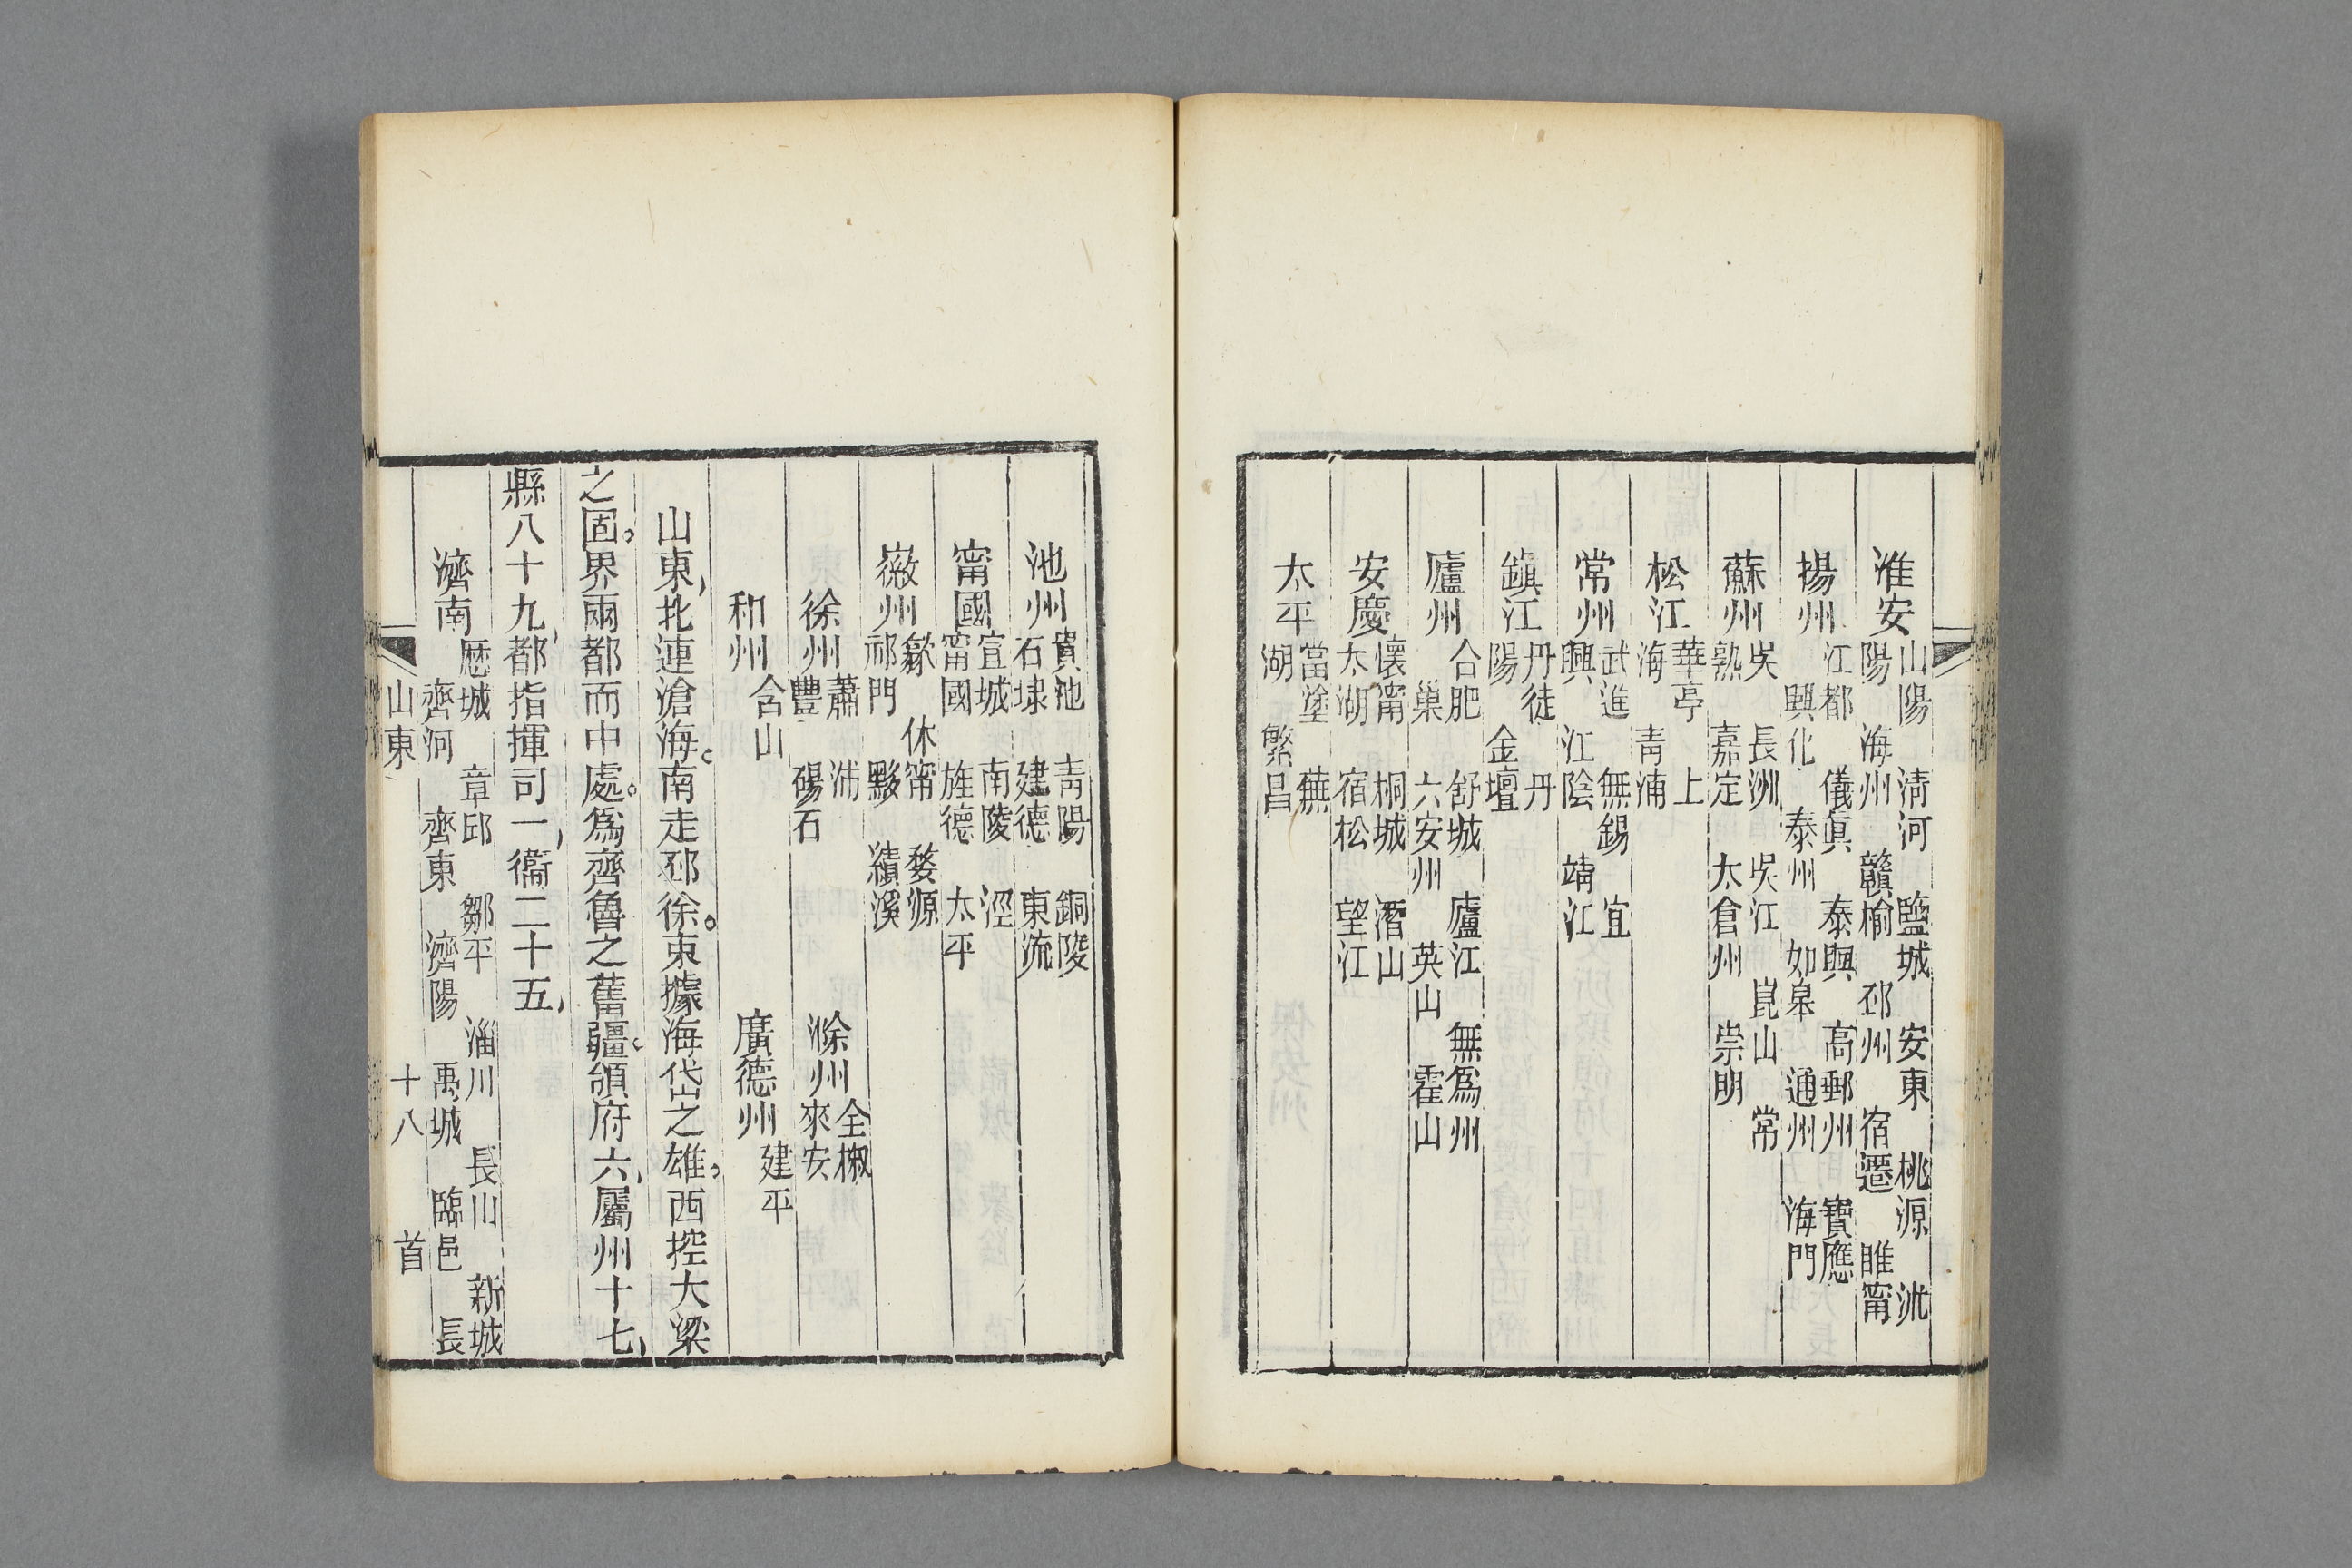 淮安 山陽 淸河 鹽城 安東 桃源 沭
陽 海州 贛榆 邳州 宿遷 睢甯
揚州 江都 儀眞 泰興 高郵州 寶應
興化 泰州 如皋 通州 海門
蘇州 吳 長洲 吳江 崑山 常
熟 嘉定 太倉州 崇明
松江 華亭 上
海 靑浦
常州 武進 無錫 宜
興 江陰 靖江
鎭江 丹徒 丹
陽 金壇
廬州 合肥 舒城 廬江 無爲州
巢 六安州 英山 霍山
安慶 懷甯 桐城 潛山
太湖 宿松 望江
太平 當塗 蕪
湖 繁昌
池州 貴池 靑陽 銅陵
石埭 建德 東流
甯國 宣城 南陵 涇
甯國 旌德 太平
徽州 歙 休甯 婺源
祁門 黟 績溪
徐州 蕭 沛
豐 碭石
滁州 全椒
來安
和州 含山
廣德州 建平
山東北連滄海南走邳徐東據海岱之雄西控大梁
之固界兩都而中處爲齊魯之舊疆領府六屬州十七
縣八十九都指揮司一衞二十五
濟南 歷城 章邱 鄒平 淄川 長川 新城
齊河 齊東 濟陽 禹城 臨邑 長
山東 十八 首